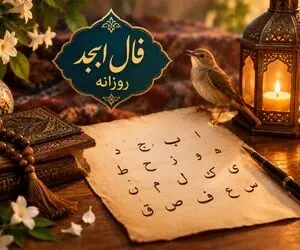 فال ابجد
روزانه
ا ب ج د
ه و ز ح ط
ی ک ل م ن
س ع ف ص ق